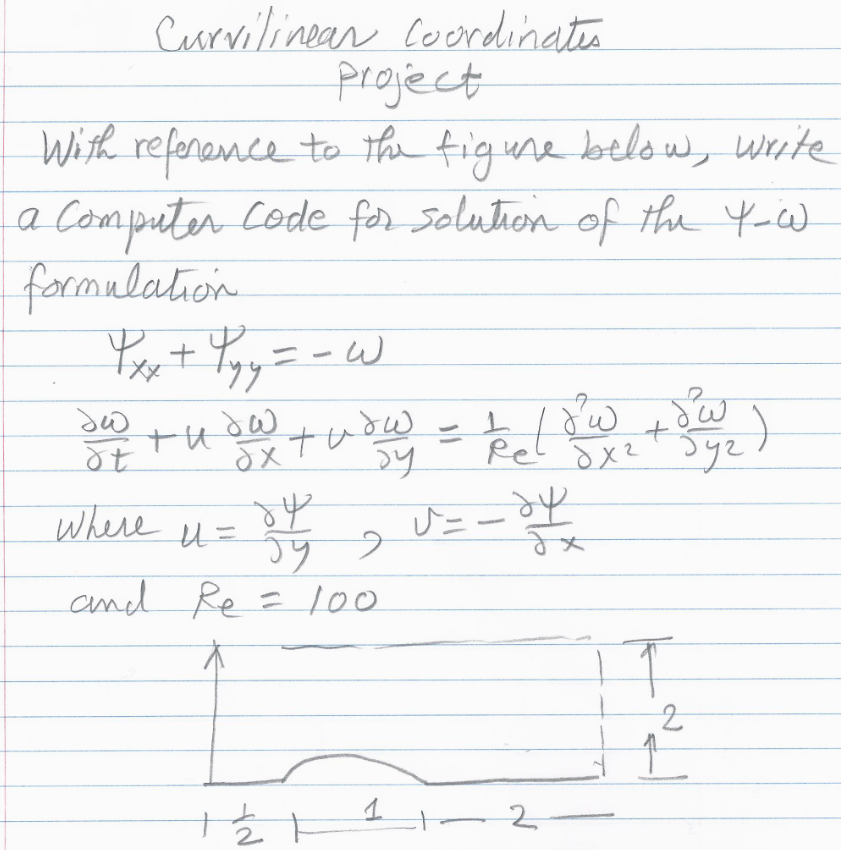 Curvilinear Coordinates
Project
With reference to the figure below, write
a Computer Code for solution of the ψ-ω
formulation
ψxx + ψyy = - ω
∂ω/∂t + u ∂ω/∂x + v ∂ω/∂y = 1/Re ( ∂²ω/∂x² + ∂²ω/∂y² )
where u = ∂ψ/∂y , v = - ∂ψ/∂x
and Re = 100
2
1/2 1 2